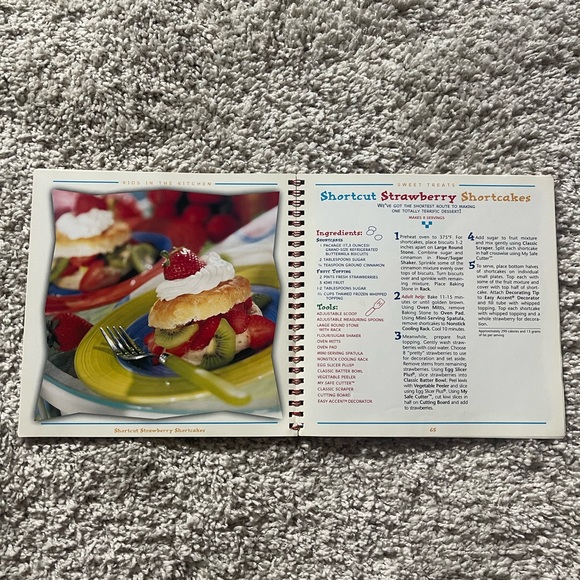 KIDS IN THE KITCHEN
Shortcut Strawberry Shortcakes
SWEET TREATS
Shortcut Strawberry Shortcakes
WE'VE GOT THE SHORTEST ROUTE TO MAKING
ONE TOTALLY TERRIFIC DESSERT!
MAKES 8 SERVINGS
Ingredients:
SHORTCAKES
1 PACKAGE (17.3 OUNCES)
GRAND-SIZE REFRIGERATED
BUTTERMILK BISCUITS
2 TABLESPOONS SUGAR
TEASPOON GROUND CINNAMON
FRUIT TOPPING
2 PINTS FRESH STRAWBERRIES
3 KIWI FRUIT
1-2 TABLESPOONS SUGAR
CUPS THAWED FROZEN WHIPPED
TOPPING
Tools:
ADJUSTABLE SCOOP
ADJUSTABLE MEASURING SPOONS
LARGE ROUND STONE
WITH RACK
FLOUR/SUGAR SHAKER
OVEN MITTS
OVEN PAD
MINI-SERVING SPATULA
NONSTICK COOLING RACK
EGG SLICER PLUS®
CLASSIC BATTER BOWL
VEGETABLE PEELER
MY SAFE CUTTER™
CLASSIC SCRAPER
CUTTING BOARD
EASY ACCENT® DECORATOR
1 Preheat oven to 375°F. For
shortcakes, place biscuits 1-2
inches apart on Large Round
Stone. Combine sugar and
cinnamon in Flour/Sugar
Shaker. Sprinkle some of the
cinnamon mixture evenly over
tops of biscuits. Turn biscuits
over and sprinkle with remain-
ing mixture. Place Baking
Stone in Rack.
2 Adult help: Bake 11-15 min-
utes or until golden brown.
Using Oven Mitts, remove
Baking Stone to Oven Pad.
Using Mini-Serving Spatula,
remove shortcakes to Nonstick
Cooling Rack. Cool 10 minutes.
3 Meanwhile, prepare fruit
topping. Gently wash straw-
berries with cool water. Choose
8 "pretty" strawberries to use
for decoration and set aside.
Remove stems from remaining
strawberries. Using Egg Slicer
Plus®, slice strawberries into
Classic Batter Bowl. Peel kiwis
with Vegetable Peeler and slice
using Egg Slicer Plus®. Using My
Safe Cutter™, cut kiwi slices in
half on Cutting Board and add
to strawberries.
4 Add sugar to fruit mixture
and mix gently using Classic
Scraper. Split each shortcake
in half crosswise using My Safe
Cutter™.
5 To serve, place bottom halves
of shortcakes on individual
small plates. Top each with
some of the fruit mixture and
cover with top half of short-
cake. Attach Decorating Tip
to Easy Accent® Decorator
and fill tube with whipped
topping. Top shortcakes
with whipped topping and a
whole strawberry for decora-
tion.
of fat per serving
65